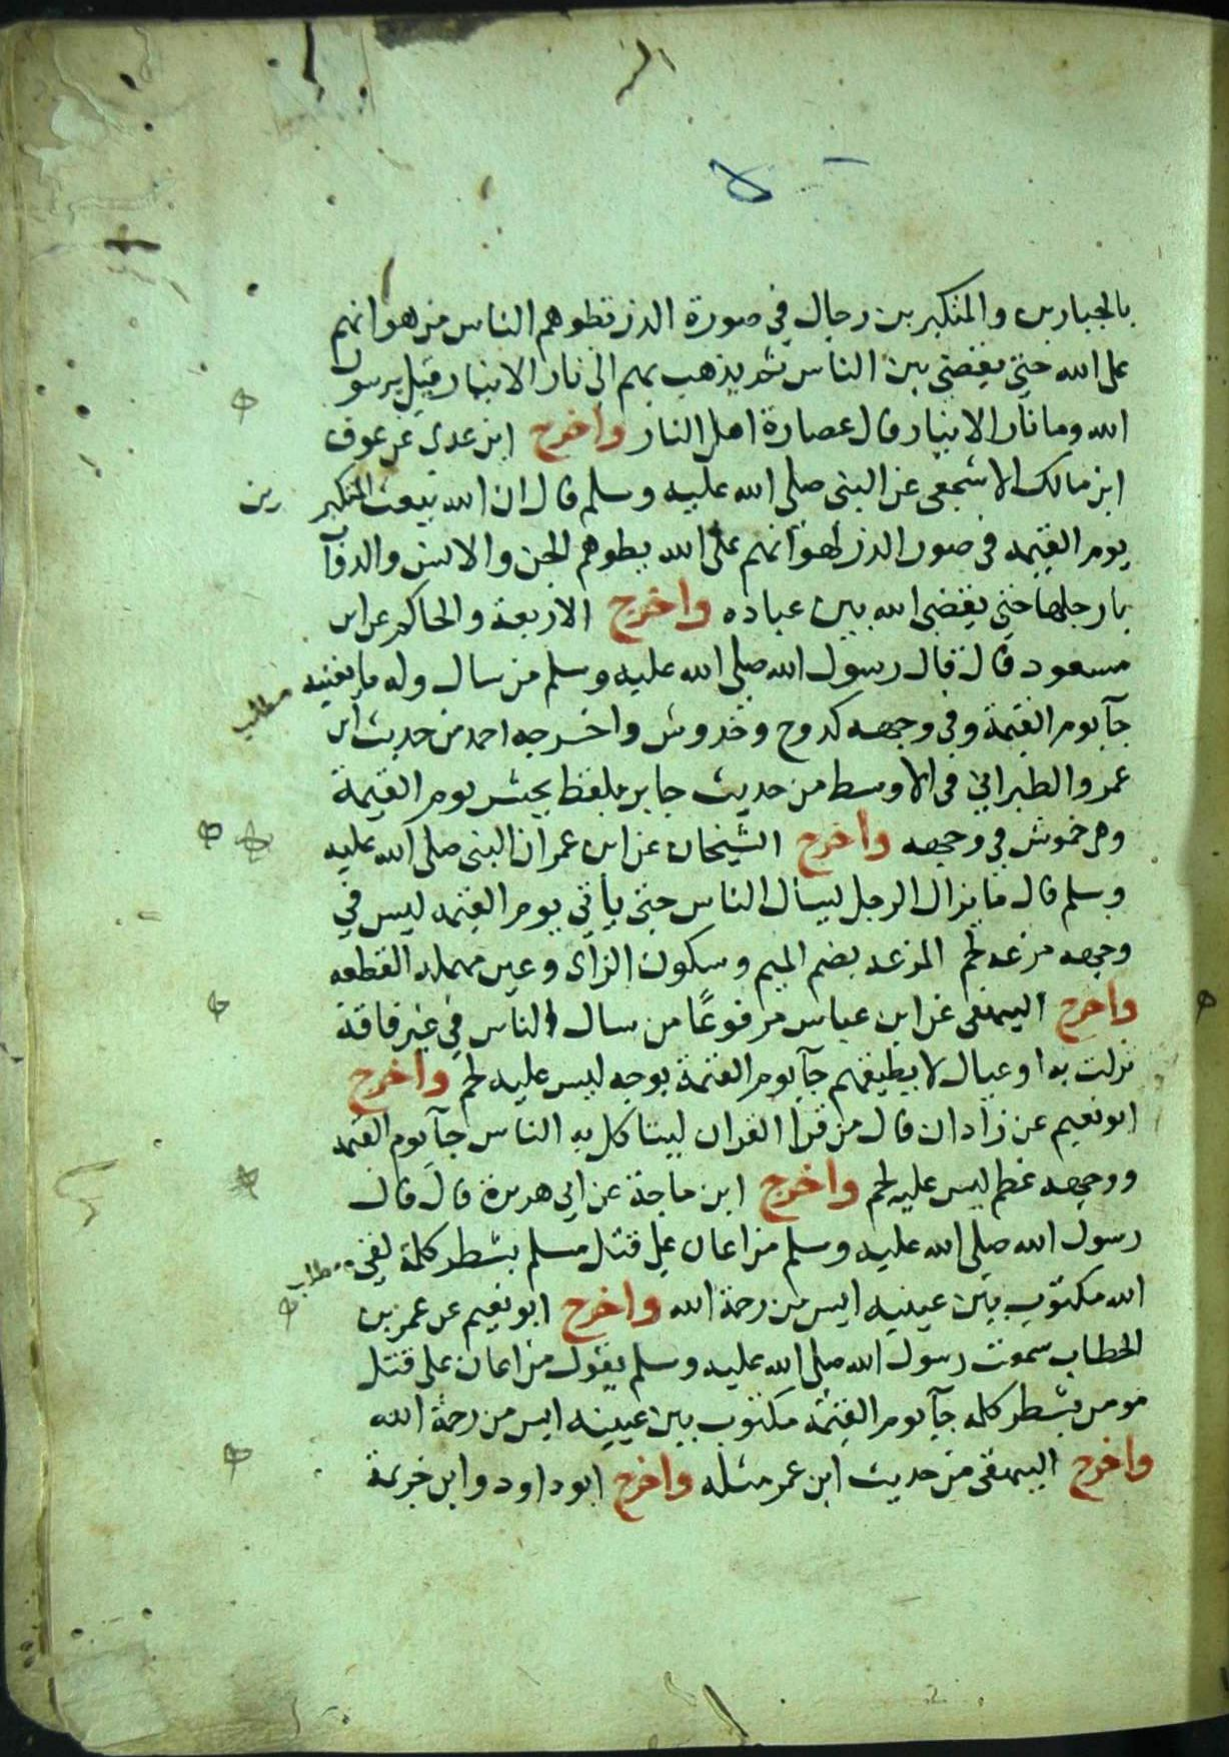 بالجبارين والمتكبرين رجال في صورة الذر تطوهم الناس من هوانهم
على الله حتى يقضى بين الناس ثم يذهب بهم الى نار الانيار قيل يرسول
الله وما نار الانيار قال عصارة اهل النار واخرج ابن عدي عن عوف
ابن مالك الاشجعي عن النبي صلى الله عليه وسلم قال ان الله يبعث المتكبر
ين
يوم القيمه في صور الذر لهوانهم على الله يطوهم الجن والانس والدوآ
بارجلها حتى يقضي الله بين عباده واخرج الاربعة والحاكم عن ابن
مسعود قال قال رسول الله صلى الله عليه وسلم من سال وله ما يغنيه
مطلب
جآ يوم القيمة وفي وجهه كدوح وخدوش واخرجه احمد من حديث ابن
عمر والطبراني في الاوسط من حديث جابر بلفظ يحشر يوم القيمة
وهي خموش في وجهه واخرج الشيخان عن ابن عمر ان النبي صلى الله عليه
وسلم قال ما يزال الرجل ليسال الناس حتى ياتي يوم القيمه ليس في
وجهه مزعه لحم المزعه بضم الميم وسكون الزاى وعين مهمله القطعه
واخرج البيهقي عن ابن عباس مرفوعًا من سال الناس في غير فاقة
نزلت به او عيال لا يطيقهم جآ يوم القيمة بوجه ليس عليه لحم واخرج
ابو نعيم عن زاذان قال من قرا القران ليتاكل به الناس جآ يوم القيمه
ووجهه عظم ليس عليه لحم واخرج ابن ماجة عن ابي هريرة قال قال
رسول الله صلى الله عليه وسلم من اعان على قتل مسلم بشطر كلمة لقي
مطلب
الله مكتوب بين عينيه ايس من رحمة الله واخرج ابو نعيم عن عمر بن
الخطاب سمعت رسول الله صلى الله عليه وسلم يقول من اعان على قتل
مومن بشطر كلمه جآ يوم القيمة مكتوب بين عينيه ايس من رحمة الله
واخرج البيهقي من حديث ابن عمر مثله واخرج ابو داود وابن خزيمة